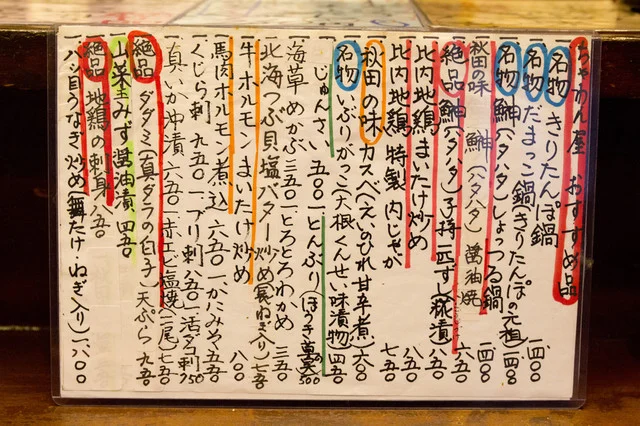 ちゃわん屋 おすすめ品
名物 きりたんぽ鍋 一四〇〇
名物 だまっこ鍋(きりたんぽの元祖)一四〇〇
名物 鰰(ハタハタ)しょっつる鍋 一四〇〇
秋田の味 鰰(ハタハタ)醤油焼 六五〇
絶品 鰰(ハタハタ)子持一匹ずし(糀漬) 八五〇
比内地鶏 まいたけ炒め 九五〇
比内地鶏 特製 肉じゃが 七五〇
秋田の味 カスベ(えいのひれ甘辛煮)六〇〇
名物 いぶりがっこ(大根くんせい味漬物)四五〇
じゅんさい 五〇〇 とんぶり(ほうき草の実)500
海草 めかぶ 三五〇 とろとろわかめ 三五〇
北海つぶ貝塩バター炒め(長ねぎ入り)七五〇
牛ホルモン まいたけ炒め 八〇〇
馬肉ホルモン煮込 六五〇 かにみそ 五五〇
くじら刺 九五〇 ブリ刺 八五〇 活ダコ刺 750
真いか沖漬 六五〇 赤エビ塩焼(二尾)七五〇
絶品 ダダミ(真ダラの白子)天ぷら 九五〇
山菜 みず 醤油漬 四五〇
絶品 地鶏の刺身 八五〇
八ツ目うなぎ炒め(舞たけ・ねぎ入り)一、八〇〇